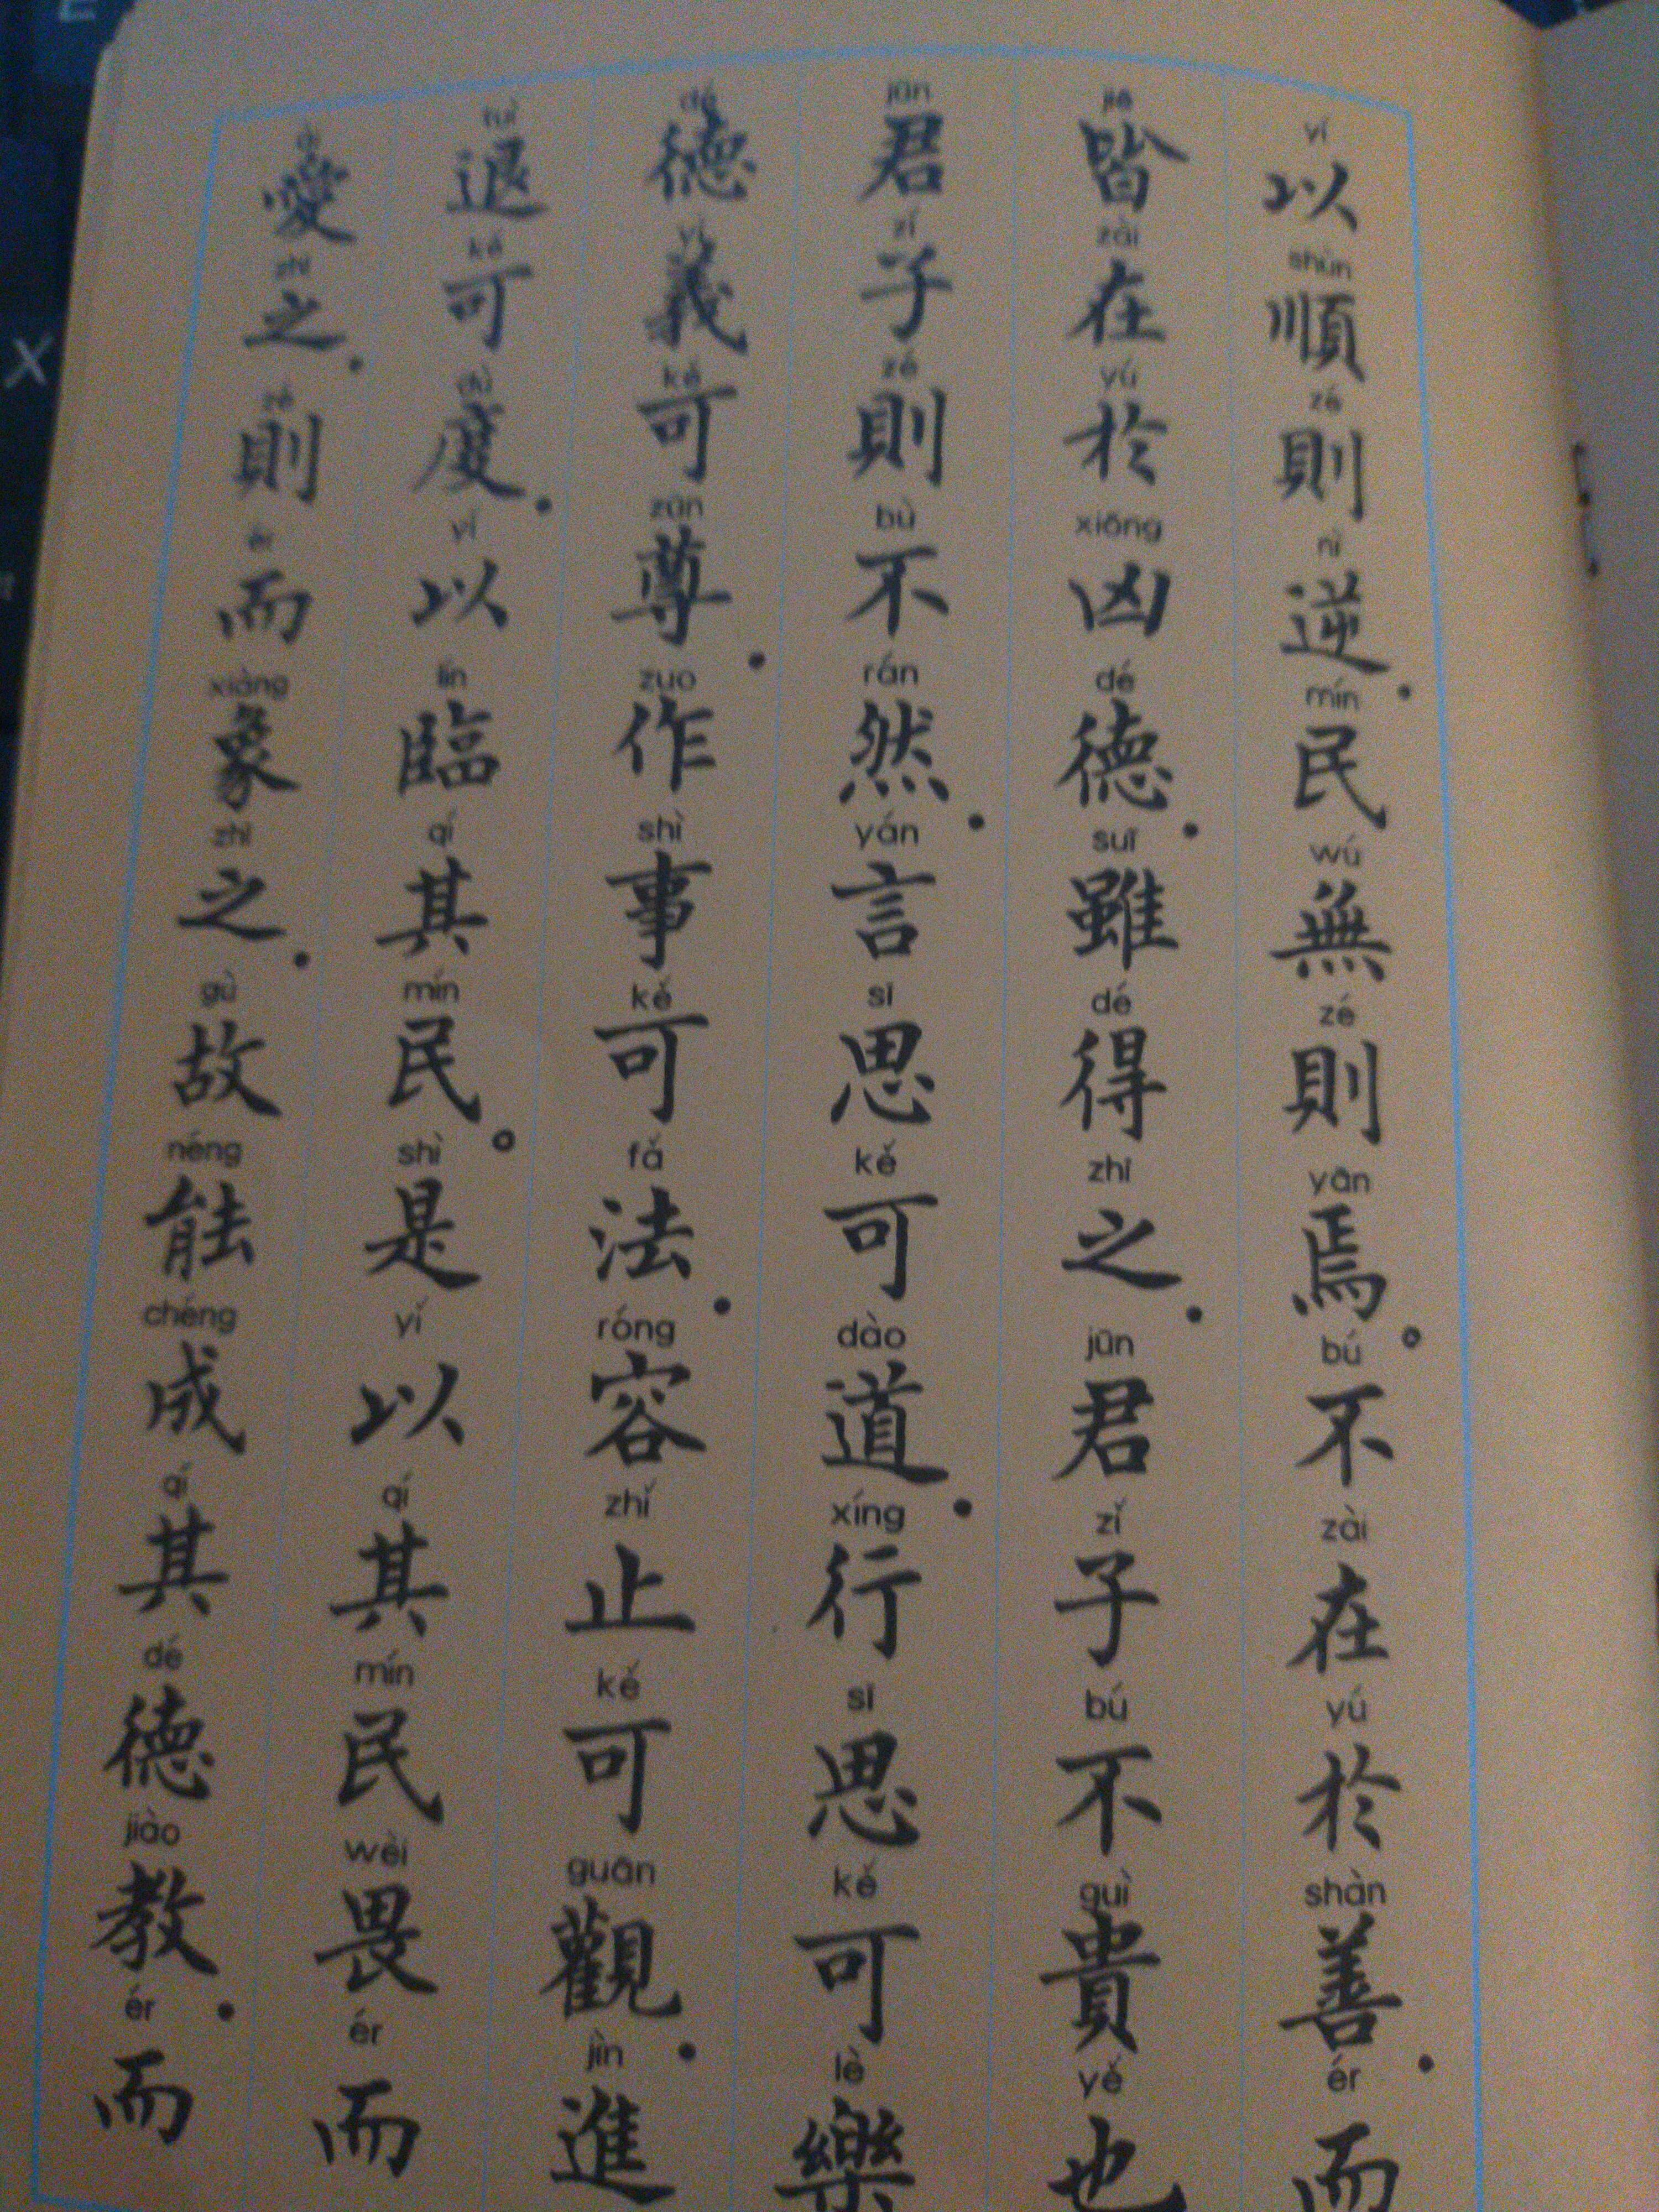 以順則逆．民無則焉。不在於善．而
皆在於凶德．雖得之．君子不貴也
君子則不然．言思可道．行思可樂
德義可尊．作事可法．容止可觀．進
退可度．以臨其民。是以其民畏而
愛之．則而象之．故能成其德教．而
X